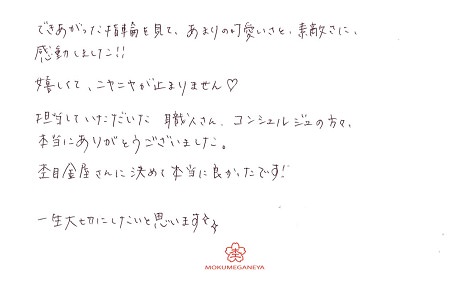 できあがった指輪を見て、あまりの可愛いさと、素敵さに、
感動しました!!
嬉しくて、ニヤニヤが止まりません♡
担当していただいた 職人さん、コンシェルジュの方々、
本当にありがとうございました。
杢目金屋さんに決めて本当に良かったです!
一生大切にしたいと思います
MOKUMEGANEYA